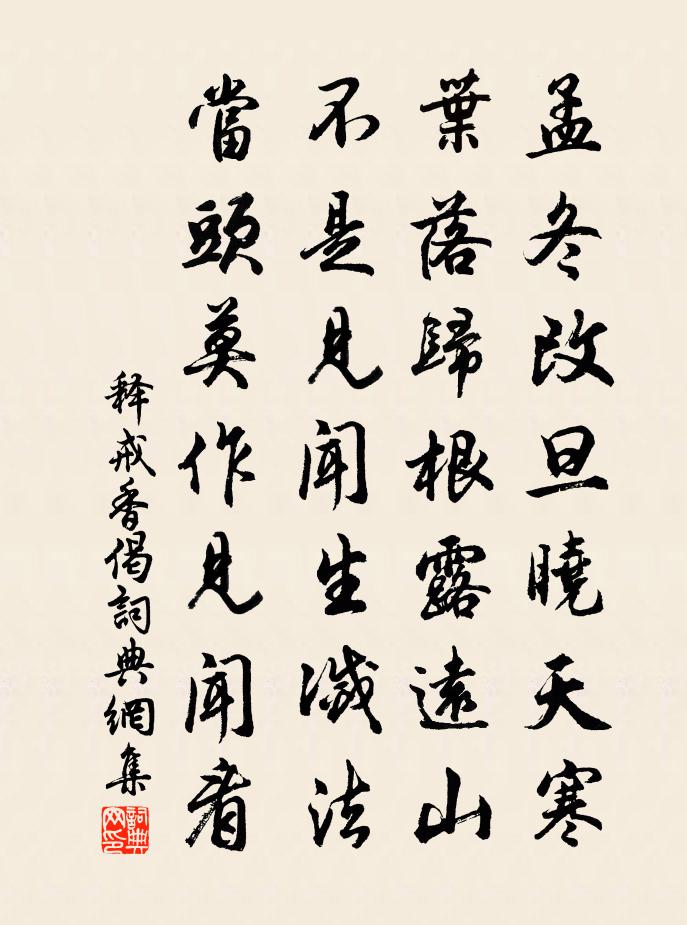 孟冬改旦曉天寒
葉落歸根露遠山
不是見聞生滅法
當頭莫作見聞看
释戒香偈詞典網集
詞典网印